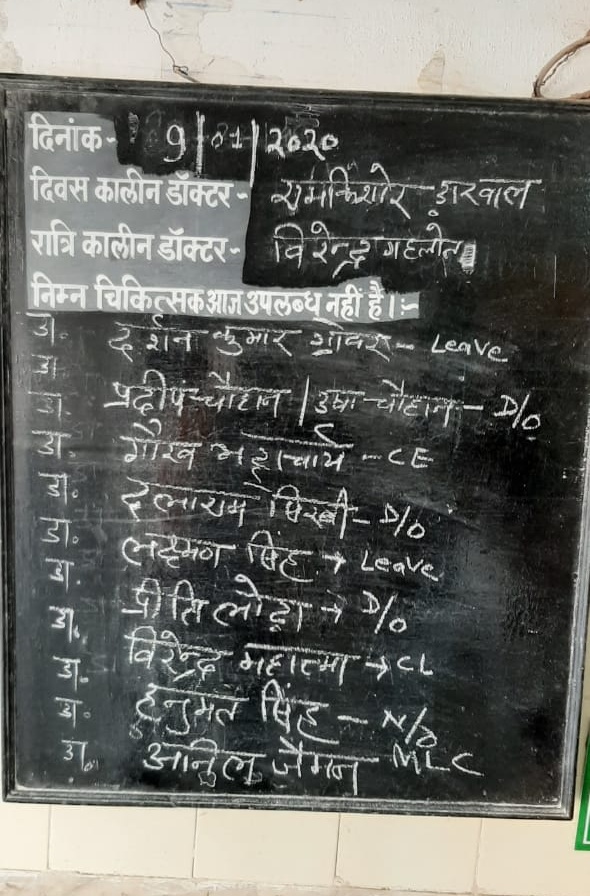 दिनांक- 9/01/2020
दिवस कालीन डॉक्टर- रामकिशोर डारवाल
रात्रि कालीन डॉक्टर- विरेन्द्र गहलोत
निम्न चिकित्सक आज उपलब्ध नहीं है।:-
डा. दर्शन कुमार ग्रोवर - Leave
डा.
डा. प्रदीप चौहान / उषा चौहान - D/o
डा. गौरव भट्टाचार्य - CE
डा. - D/o
डा. लक्ष्मण सिंह → Leave
डा. प्रीति लोढ़ा → D/o
डा. विरेन्द्र महात्मा → CL
डा. हनुमंत सिंह - N/o
डा. अनिल जैमन MLC